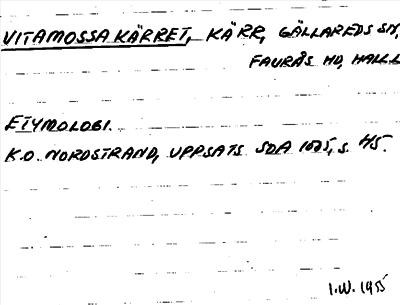 VITAMOSSA KÄRRET, KÄRR, GÄLLAREDS SN,
FAURÅS HD, HALL.L
ETYMOLOGI.
K.O. NORDSTRAND, UPPSATS SOA 1625, S. 45.
I.W. 1955